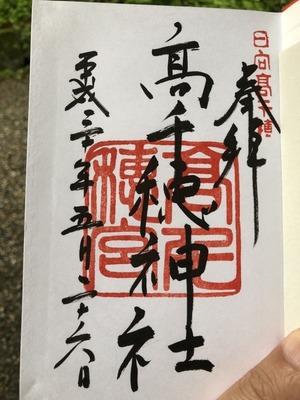 日向髙千穂
奉拝
髙千穂神社
高千穂宮
平成三十年五月二十六日